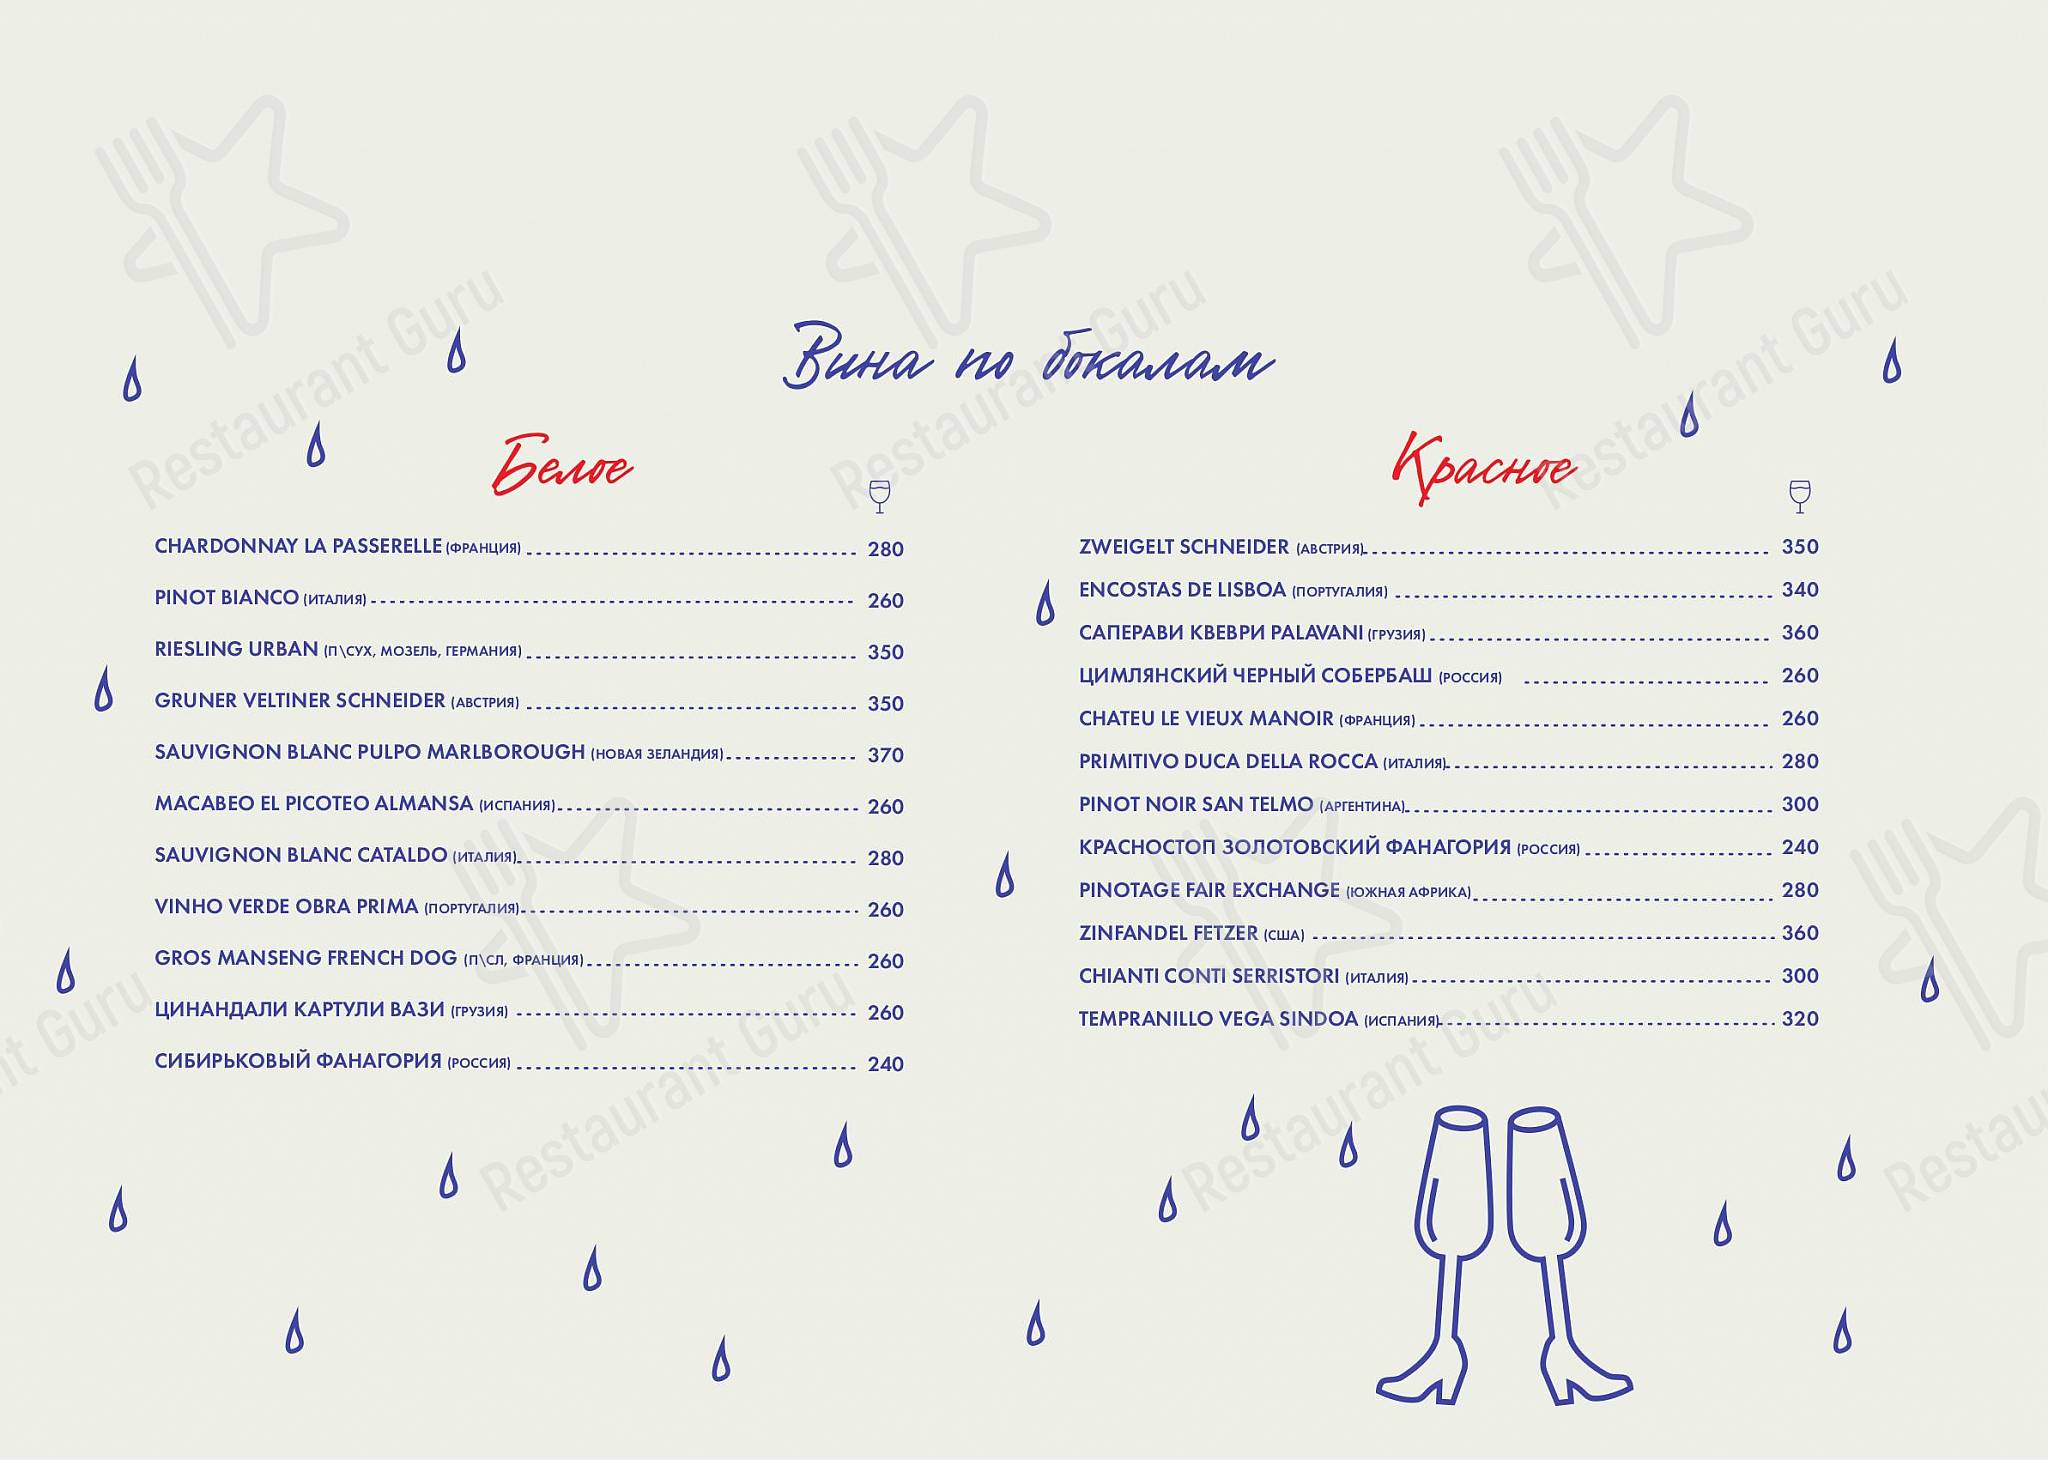 Вина по бокалам
Белое
CHARDONNAY LA PASSERELLE (ФРАНЦИЯ) 280
PINOT BIANCO (ИТАЛИЯ) 260
RIESLING URBAN (П\СУХ, МОЗЕЛЬ, ГЕРМАНИЯ) 350
GRUNER VELTINER SCHNEIDER (АВСТРИЯ) 350
SAUVIGNON BLANC PULPO MARLBOROUGH (НОВАЯ ЗЕЛАНДИЯ) 370
MACABEO EL PICOTEO ALMANSA (ИСПАНИЯ) 260
SAUVIGNON BLANC CATALDO (ИТАЛИЯ) 280
VINHO VERDE OBRA PRIMA (ПОРТУГАЛИЯ) 260
GROS MANSENG FRENCH DOG (П\СЛ, ФРАНЦИЯ) 260
ЦИНАНДАЛИ КАРТУЛИ ВАЗИ (ГРУЗИЯ) 260
СИБИРЬКОВЫЙ ФАНАГОРИЯ (РОССИЯ) 240
Красное
ZWEIGELT SCHNEIDER (АВСТРИЯ) 350
ENCOSTAS DE LISBOA (ПОРТУГАЛИЯ) 340
САПЕРАВИ КВЕВРИ PALAVANI (ГРУЗИЯ) 360
ЦИМЛЯНСКИЙ ЧЕРНЫЙ СОБЕРБАШ (РОССИЯ) 260
CHATEU LE VIEUX MANOIR (ФРАНЦИЯ) 260
PRIMITIVO DUCA DELLA ROCCA (ИТАЛИЯ) 280
PINOT NOIR SAN TELMO (АРГЕНТИНА) 300
КРАСНОСТОП ЗОЛОТОВСКИЙ ФАНАГОРИЯ (РОССИЯ) 240
PINOTAGE FAIR EXCHANGE (ЮЖНАЯ АФРИКА) 280
ZINFANDEL FETZER (США) 360
CHIANTI CONTI SERRISTORI (ИТАЛИЯ) 300
TEMPRANILLO VEGA SINDOA (ИСПАНИЯ) 320
Restaurant Guru
Restaurant Guru
Restaurant Guru
Restaurant Guru
Restaurant Guru